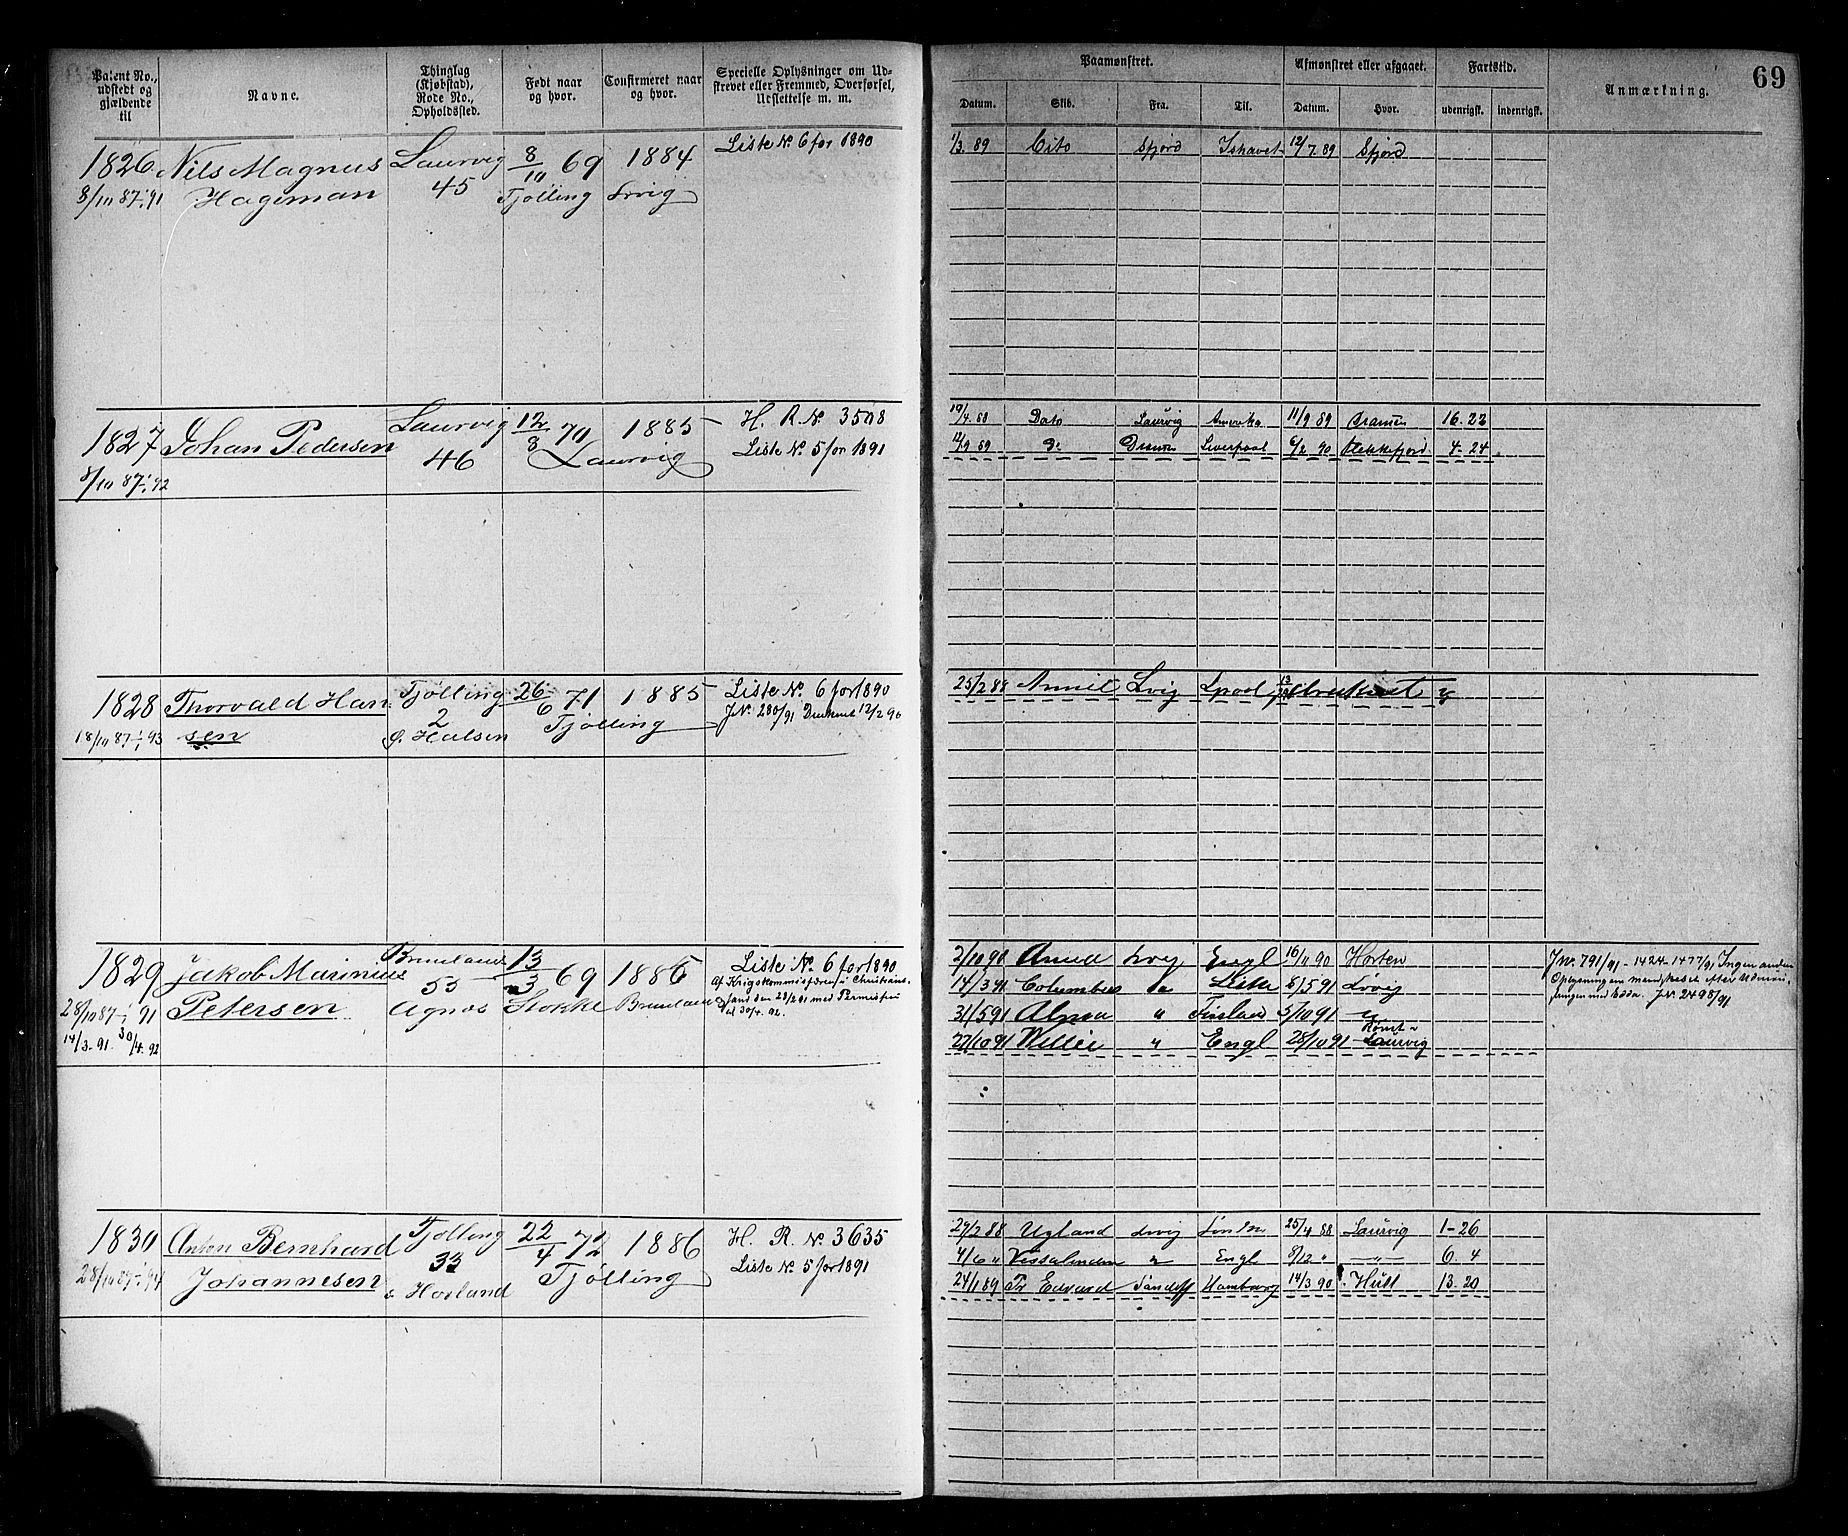 69
Patent No., udstedt og gjældende til
Navne.
Thinglag (Kjøbstad), Rode No., Opholdssted.
Født naar og hvor.
Confirmeret naar og hvor.
Specielle Oplysninger om Udskrevet eller Fremmed, Overførsel, Udslettelse m. m.
Paamønstret.
Afmønstret eller afgaaet.
Fartstid.
Anmærkning.
Datum. Skib. Fra. Til. Datum. Hvor. udenrigsk. indenrigsk.
1826 Nils Magnus Laurvig 8/10 69 1884 Liste No 6 for 1890
8/10 87 1/1 91 Hageman 45 Tjølling Lrvig
1/3 89 Cito Sfjord Ishavet 12/7 89 Sfjord
1827 Johan Pedersen Laurvig 12/8 70 1885 H. R. No 3508
8/10 87 1/1 92 46 Laurvig Liste No 5 for 1891
19/4 88 Dato Laurvig Amerika 11/9 89 Dramen 16. 22
12/9 89 Do Dramen Liverpool 6/2 90 Flekkefjord 4-24
1828 Thorvald Han Tjølling 26/6 71 1885 Liste No 6 for 1890
18/10 87 1/1 93 sen 2 Tjølling J No 280/91 Druknet 12/2 90
Ø. Halsen
25/2 88 Lvig Lpool
1829 Jakob Marinius Brunlanæs 13/3 69 1885 Liste No 6 for 1890
28/10 87 1/1 91 Petersen 55 Stokke Brunlanæs
14/3 91. 30/4 92 Agnæs
med Permission til 30/4. 92.
2/10 90 Anna Lrvig Engl 16/11 90 Horten J No 791/91 - 1424-1477/91 Ingen anden
14/3 91 Columbus 8/5 91 Lrvig
J No 2498/91
31/5 91 Alpha " Finland 3/10 91 "
27/10 91 " Engl 28/10 91 Rømt Laurvig
1830 Anton Bernhard Tjølling 22/4 72 1886 H. R. No 3635
28/10 87 1/1 94 Johannesen 33 Tjølling Liste No 5 for 1891
Horland
29/2 88 Ugland Lrvig 25/4 88 Laurvig 1-26
4/6 " " Engl 8/12 " -"- 6. 4
24/1 89 Pr Edvard Sandeff Hamburg 14/3 90 Hull 13-20